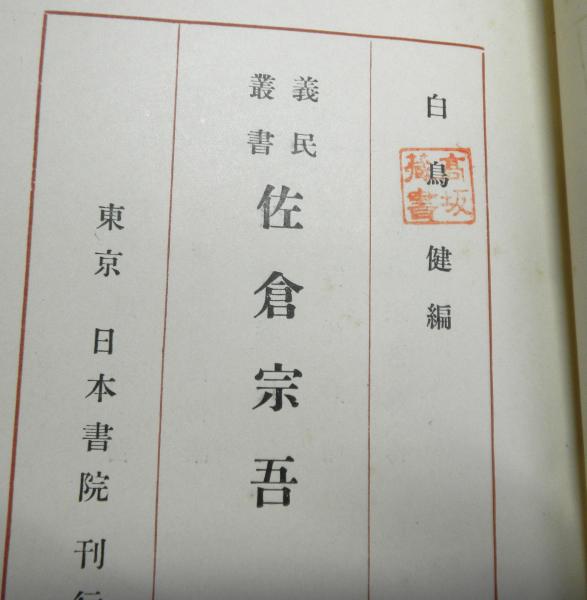 白鳥健編
高坂
藏書
義民
叢書
佐倉宗吾
東京 日本書院刊行